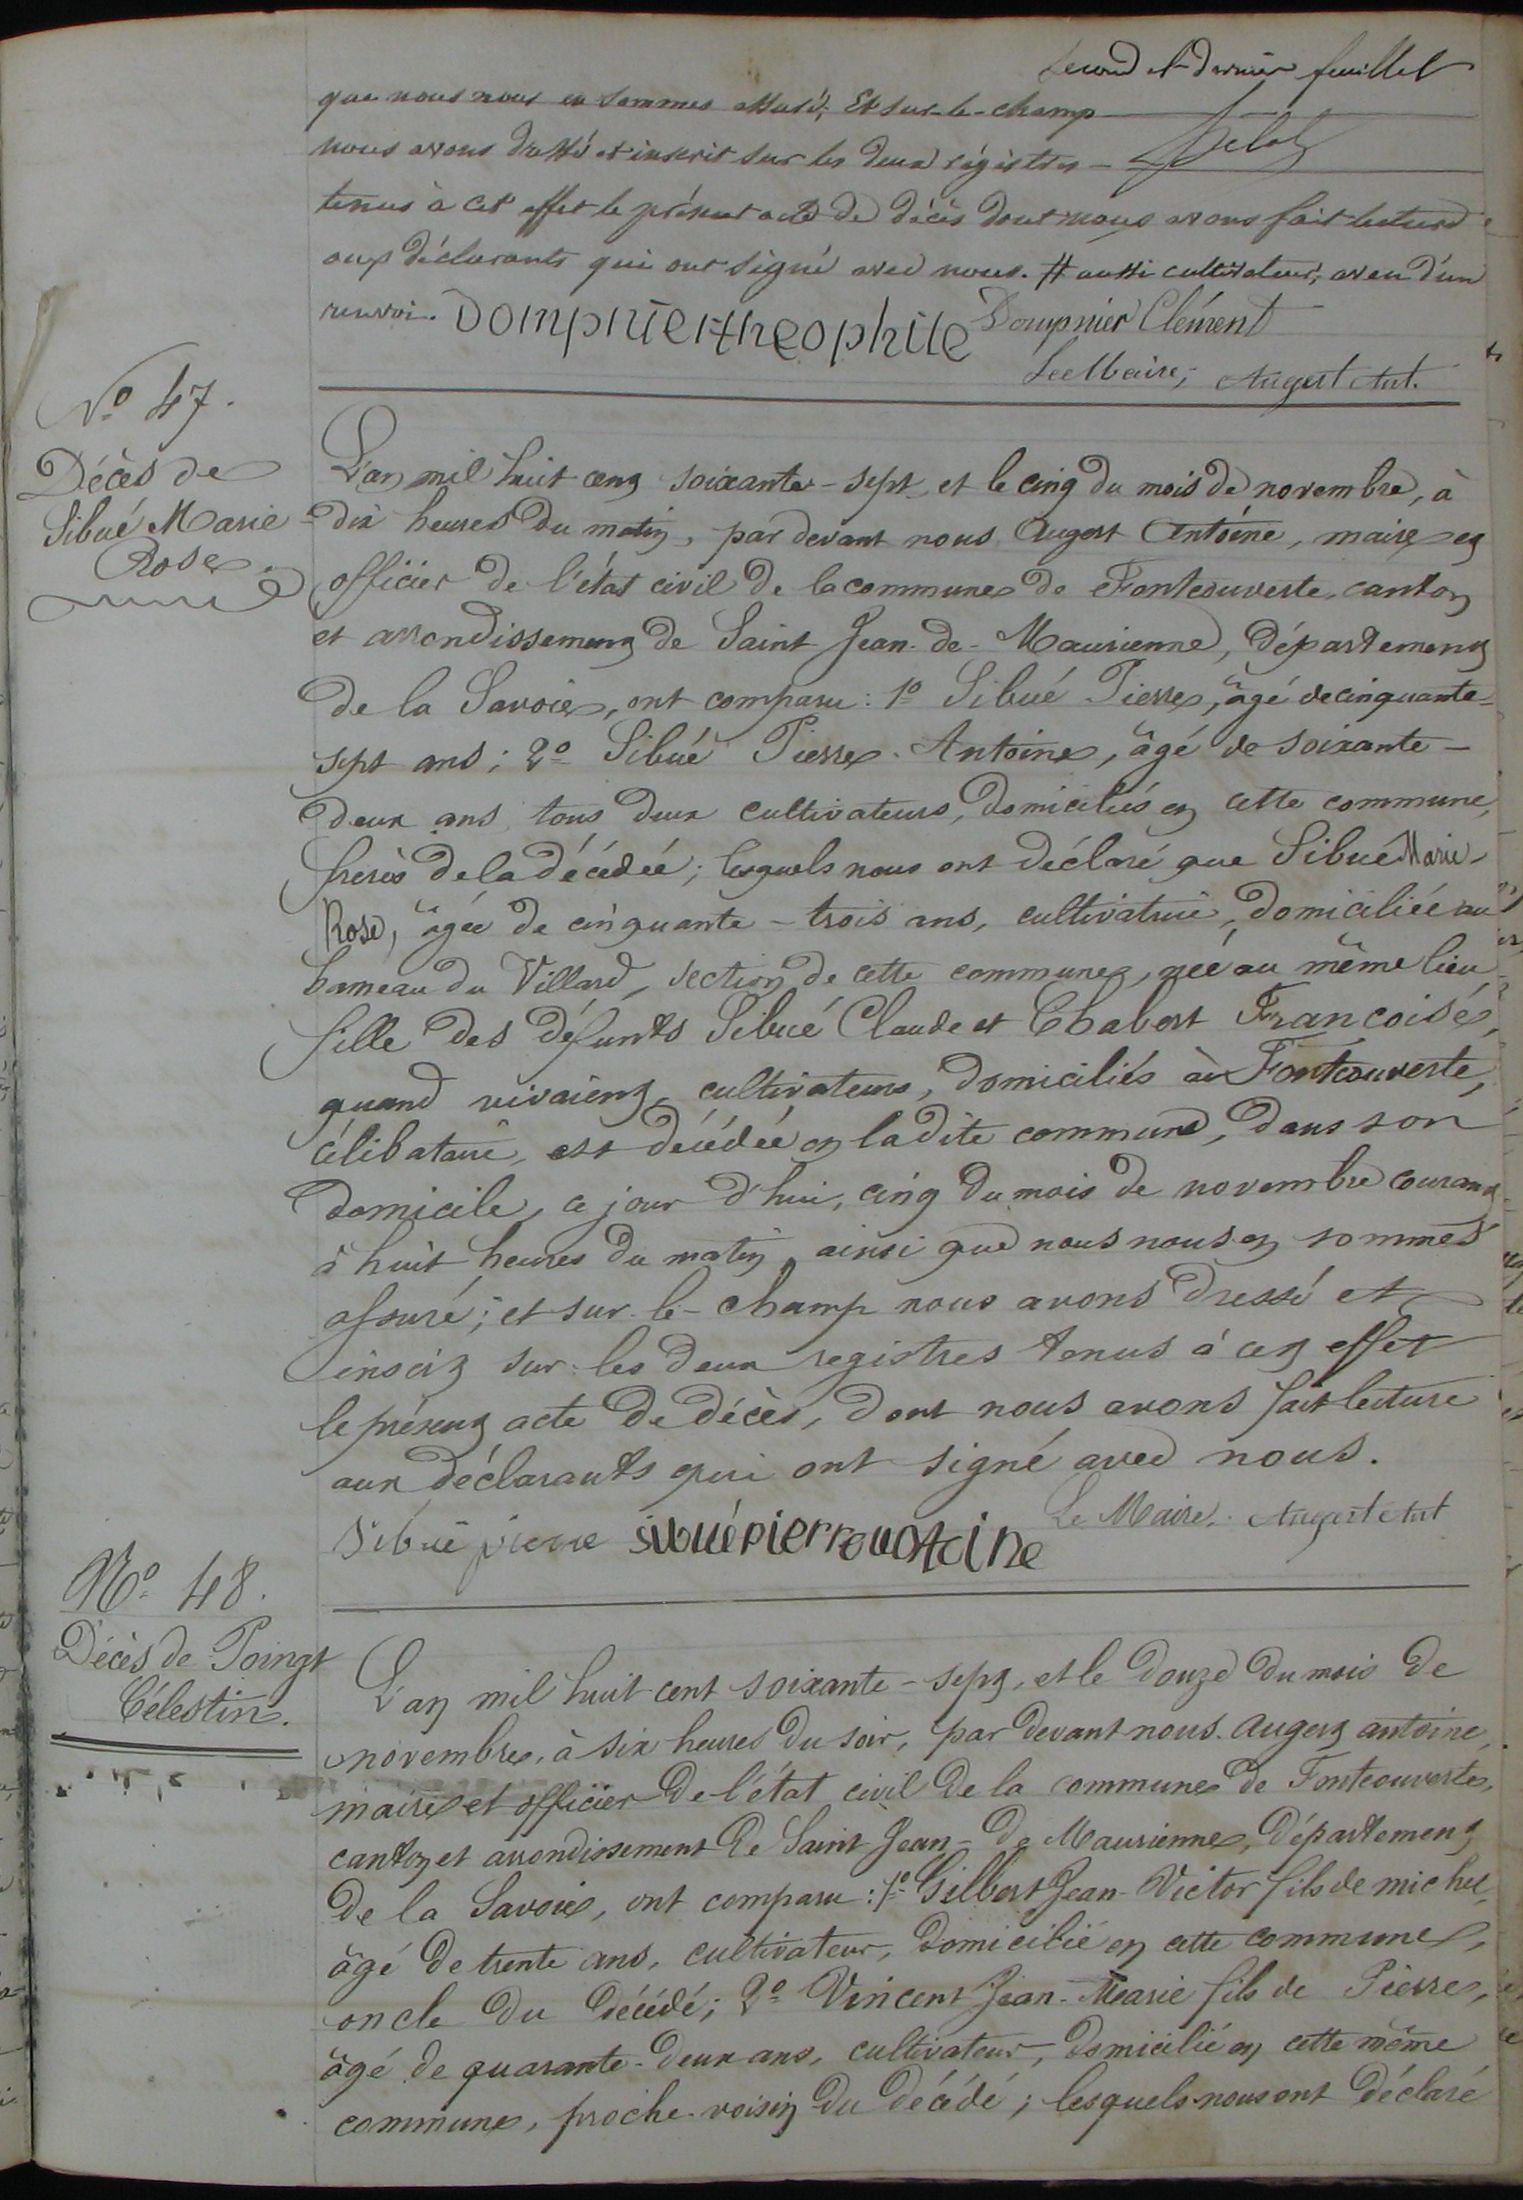 second et dernier feuillet
que nous nous en sommes assuré; Et sur-le-champ
nous avons dressé et inscrit sur les deux régistres
tenus à cet effet le présent acte de décès dont nous avons fait lecture
aux déclarants qui ont signé avec nous. # aussi cultivateur, aveu d'un
renvoi. Dompnier theophile Dompnier Clément
Le Maire, Augert Ant.
N.º 47.
Décès de
Sibué Marie
Rose.
L'an mil huit cent soixante-sept et le cinq du mois de novembre, à
dix heures du matin, par devant nous Augert Antoine, maire et
officier de l'état civil de la commune de Fontcouverte, canton
et arrondissement de Saint-Jean-de-Maurienne, département
de la Savoie, ont comparu: 1º Sibué Pierre, âgé de cinquante-
sept ans; 2º Sibué Pierre-Antoine, âgé de soixante-
deux ans, tous deux cultivateurs, domiciliés en cette commune,
frères de la décédée; lesquels nous ont déclaré que Sibué Marie-
Rose, âgée de cinquante-trois ans, cultivatrice, domiciliée au
hameau du Villard, section de cette commune, née au même lieu,
fille des défunts Sibué Claude et Chabert Françoise,
quand vivaient, cultivateurs, domiciliés à Fontcouverte,
célibataire, est décédée en ladite commune, dans son
domicile, ce jour d'hui, cinq du mois de novembre courant
à huit heures du matin, ainsi que nous nous en sommes
assuré; et sur-le-champ nous avons dressé et
inscrit sur les deux registres tenus à cet effet
le présent acte de décès, dont nous avons fait lecture
aux déclarants qui ont signé avec nous.
Le Maire, Augert Ant
Sibué pierre sibué pierre antoine
Nº 48.
Décès de Poingt
Célestin.
L'an mil huit cent soixante-sept, et le douze du mois de
novembre, à six heures du soir, par devant nous Augert antoine,
maire et officier de l'état civil de la commune de Fontcouverte,
canton et arrondissement de Saint Jean-de Maurienne, département
de la Savoie, ont comparu: 1º Gilbert Jean-Victor fils de michel,
âgé de trente ans, cultivateur, domicilié en cette commune,
oncle du décédé; 2º Vincent Jean-Marie fils de Pierre,
âgé de quarante-deux ans, cultivateur, domicilié en cette même
commune, proche voisin du décédé; lesquels nous ont déclaré